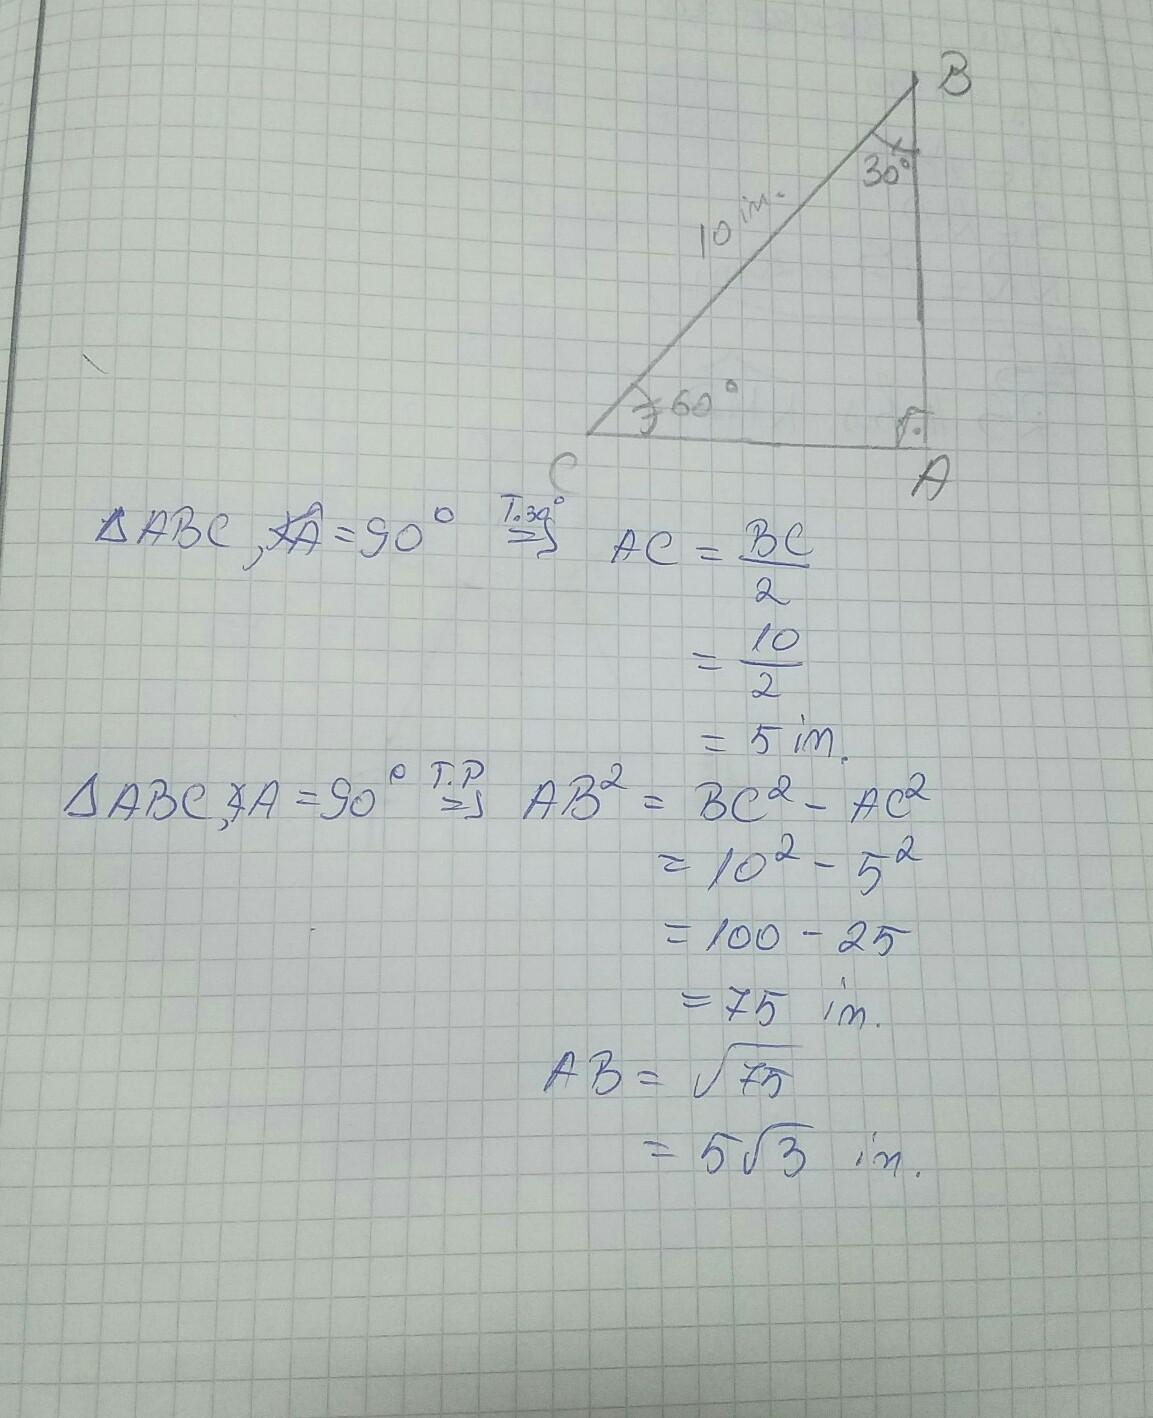 B
30°
10 in.
60°
C
A
△ABC, ∢A = 90° T.30° ⇒ AC = BC/2
= 10/2
= 5 in.
△ABC, ∢A = 90° T.P ⇒ AB² = BC² - AC²
= 10² - 5²
= 100 - 25
= 75 in.
AB = √75
= 5√3 in.